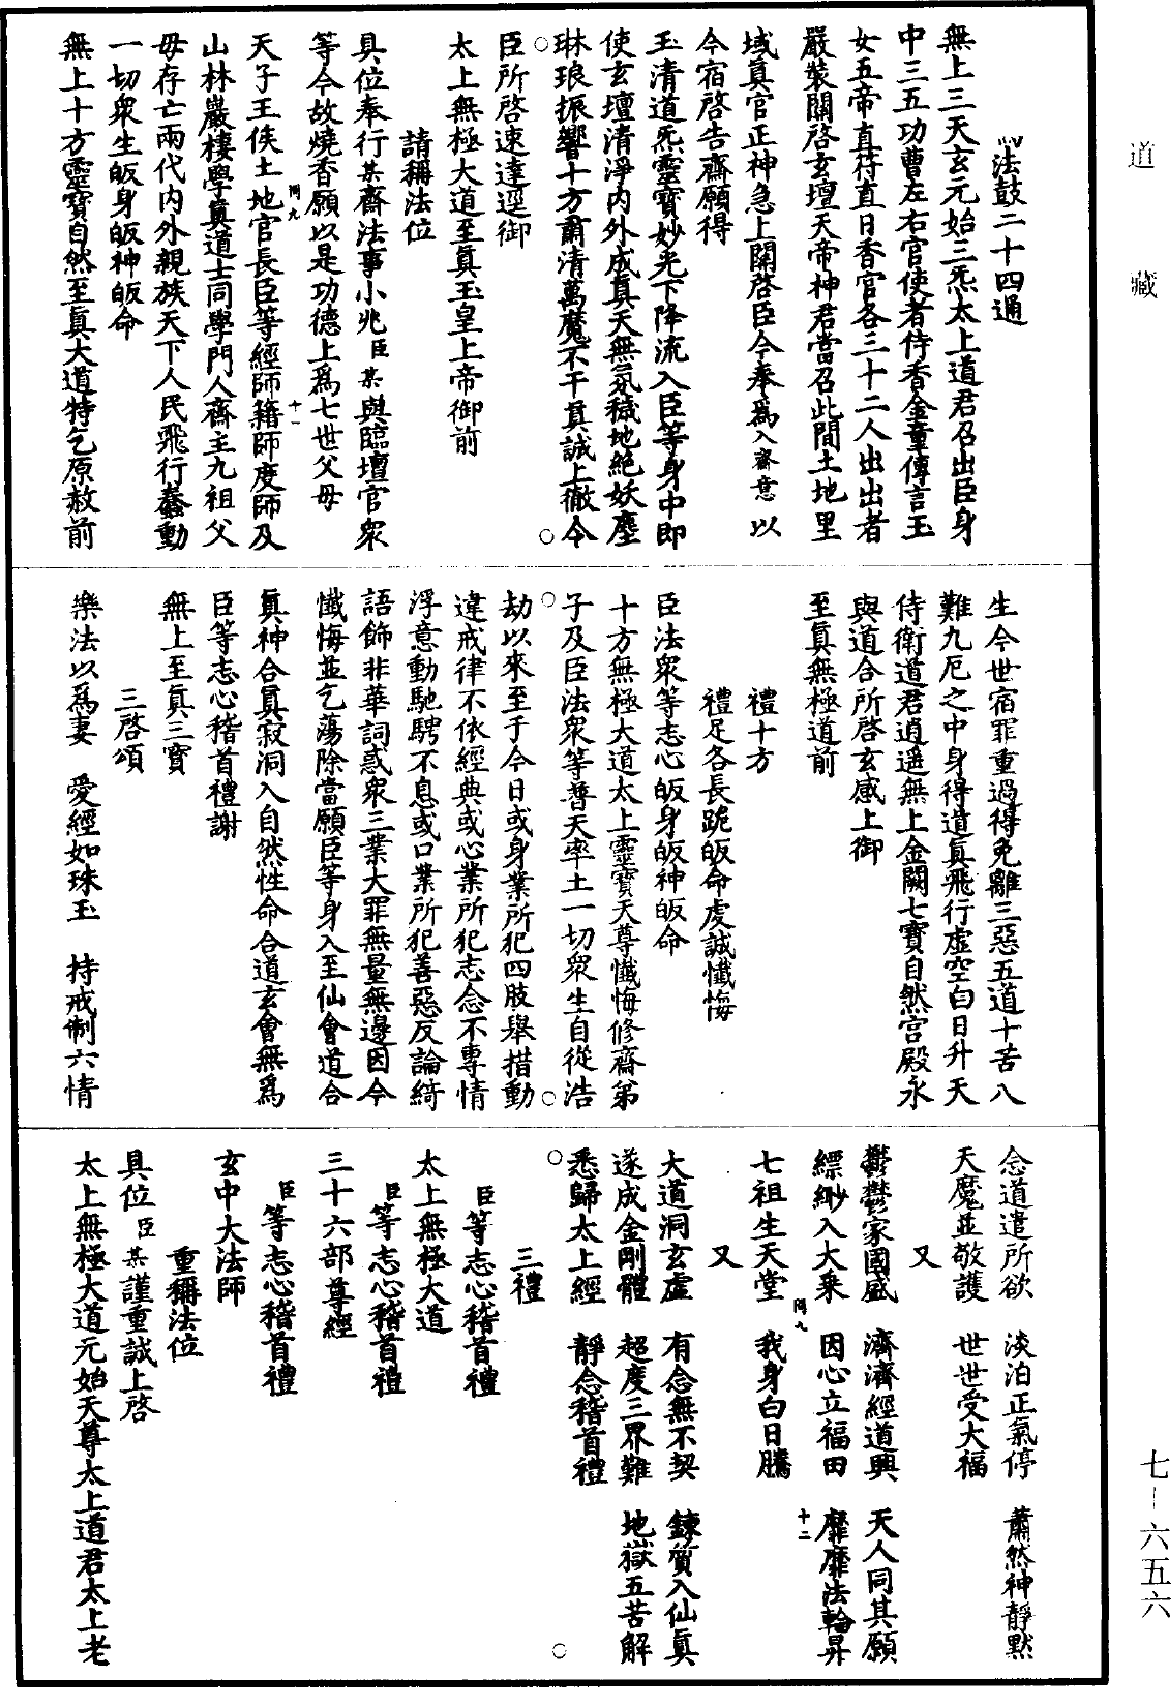 道藏
七-六五六
法鼓二十四通
無上三天玄元始三炁太上道君召出臣身
中三五功曹左右官使者侍香金童傳言玉
女五帝直符直日香官各三十二人出出者
嚴裝關啓玄壇天帝神君當召此間土地里
域真官正神急上關啓臣今奉爲入齋意以
今宿啓告齋願得
玉清道炁靈寶妙光下降流入臣等身中即
使玄壇清淨内外成真天無氛穢地絶妖塵
琳琅振響十方肅清萬魔不干真誠上徹令
臣所啓速達逕御
太上無極大道至真玉皇上帝御前
請稱法位
具位奉行某齋法事小兆臣某與臨壇官衆
等今故燒香願以是功德上爲七世父母
天子王侯土地官長臣等經師籍師度師及
同九 十一
山林巖棲學真道士同學門人齋主九祖父
母存亡兩代内外親族天下人民飛行蠢動
一切衆生皈身皈神皈命
無上十方靈寶自然至真大道特乞原赦前
生今世宿罪重過得免離三惡五道十苦八
難九厄之中身得道真飛行虛空白日升天
侍衛道君逍遥無上金闕七寶自然宫殿永
與道合所啓玄感上御
至真無極道前
禮十方
禮足各長跪皈命虔誠懺悔
臣法衆等志心皈身皈神皈命
十方無極大道太上靈寶天尊懺悔修齋弟
子及臣法衆等普天率土一切衆生自從浩
劫以來至于今日或身業所犯四肢舉措動
違戒律不依經典或心業所犯志念不專情
浮意動馳騁不息或口業所犯善惡反論綺
語飾非華詞惑衆三業大罪無量無邊因今
懺悔並乞蕩除當願臣等身入至仙會道合
真神合真寂洞入自然性命合道玄會無爲
臣等志心稽首禮謝
無上至真三寶
三啓頌
樂法以爲妻 愛經如珠玉 持戒制六情
念道遣所欲 淡泊正氣停 蕭然神靜默
天魔並敬護 世世受大福
又
鬱鬱家國盛 濟濟經道興 天人同其願
縹緲入大乘 因心立福田 靡靡法輪昇
同九 十二
七祖生天堂 我身白日騰
又
大道洞玄虛 有念無不契 鍊質入仙真
遂成金剛體 超度三界難 地獄五苦解
悉歸太上經 靜念稽首禮
三禮
臣等志心稽首禮
太上無極大道
臣等志心稽首禮
三十六部尊經
臣等志心稽首禮
玄中大法師
重稱法位
具位臣某謹重誠上啓
太上無極大道元始天尊太上道君太上老